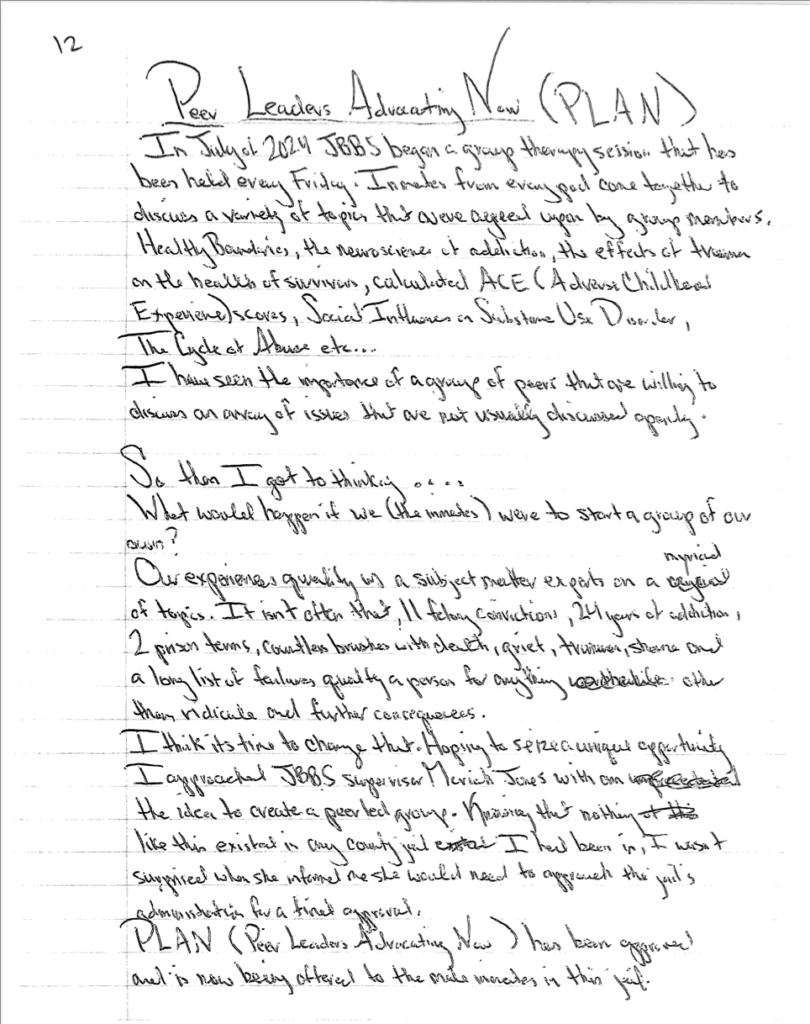 12
Peer Leaders Advocating Now (PLAN)
In July of 2024 JBBS began a group therapy session that has
been held every Friday. Inmates from every pod come together to
discuss a variety of topics that were agreed upon by group members.
Healthy Boundaries, the neuroscience of addiction, the effects of trauma
on the health of survivors, calculated ACE (Adverse Childhood
Experience) scores, Social Influences on Substance Use Disorder,
The Cycle of Abuse etc...
I have seen the importance of a group of peers that are willing to
discuss an array of issues that are not usually discussed openly.
So then I got to thinking....
What would happen if we (the inmates) were to start a group of our
own?
Our experiences qualify us a subject matter experts on a myriad
of topics. It isn't often that, 11 felony convictions, 24 years of addiction,
2 prison terms, countless brushes with death, grief, trauma, shame and
a long list of failures qualify a person for anything other
than ridicule and further consequences.
I think its time to change that. Hoping to seize a unique opportunity
I approached JBBS supervisor Mariah Jones with an
the idea to create a peer led group. Knowing that nothing
like this existed in any county jail I had been in, I wasn't
surprised when she informed me she would need to approach the jail's
administration for a final approval.
PLAN (Peer Leaders Advocating Now) has been approved
and is now being offered to the male inmates in this jail.